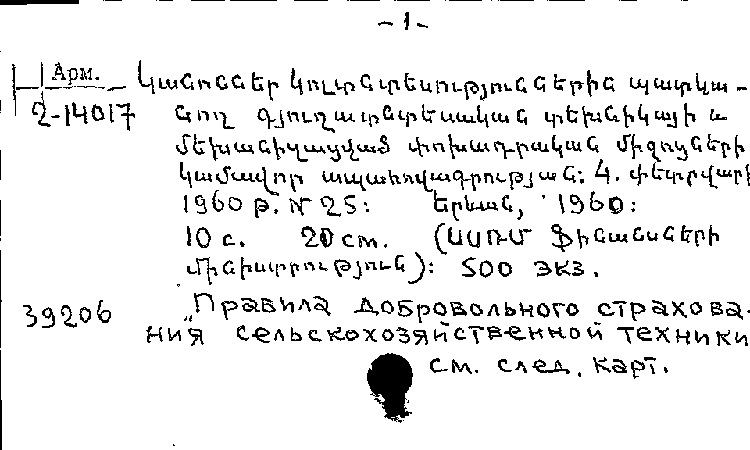 -1-
Арм. Կանոններ կոլտնտեսություններին պատկա-
2-14017 նող գյուղատնտեսական տեխնիկայի և
մեխանիզացված փոխադրական միջոցների
կամավոր ապահովագրության: 4. փետրվարի
1960 թ. N 25: Երևան, 1960:
10 с. 20 см. (ՍՍՌՄ Ֆինանսների
մինիստրություն): 500 экз.
39206 „Правила добровольного страхова-
ния сельскохозяйственной техники
см. след. карт.